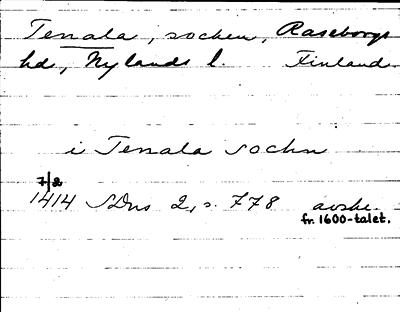 Tenala, socken, Raseborgs
hd, Nylands l. Finland.
i Tenala sochn
7/2
1414 SDns 2, s. 778 avskr.
fr. 1600-talet.